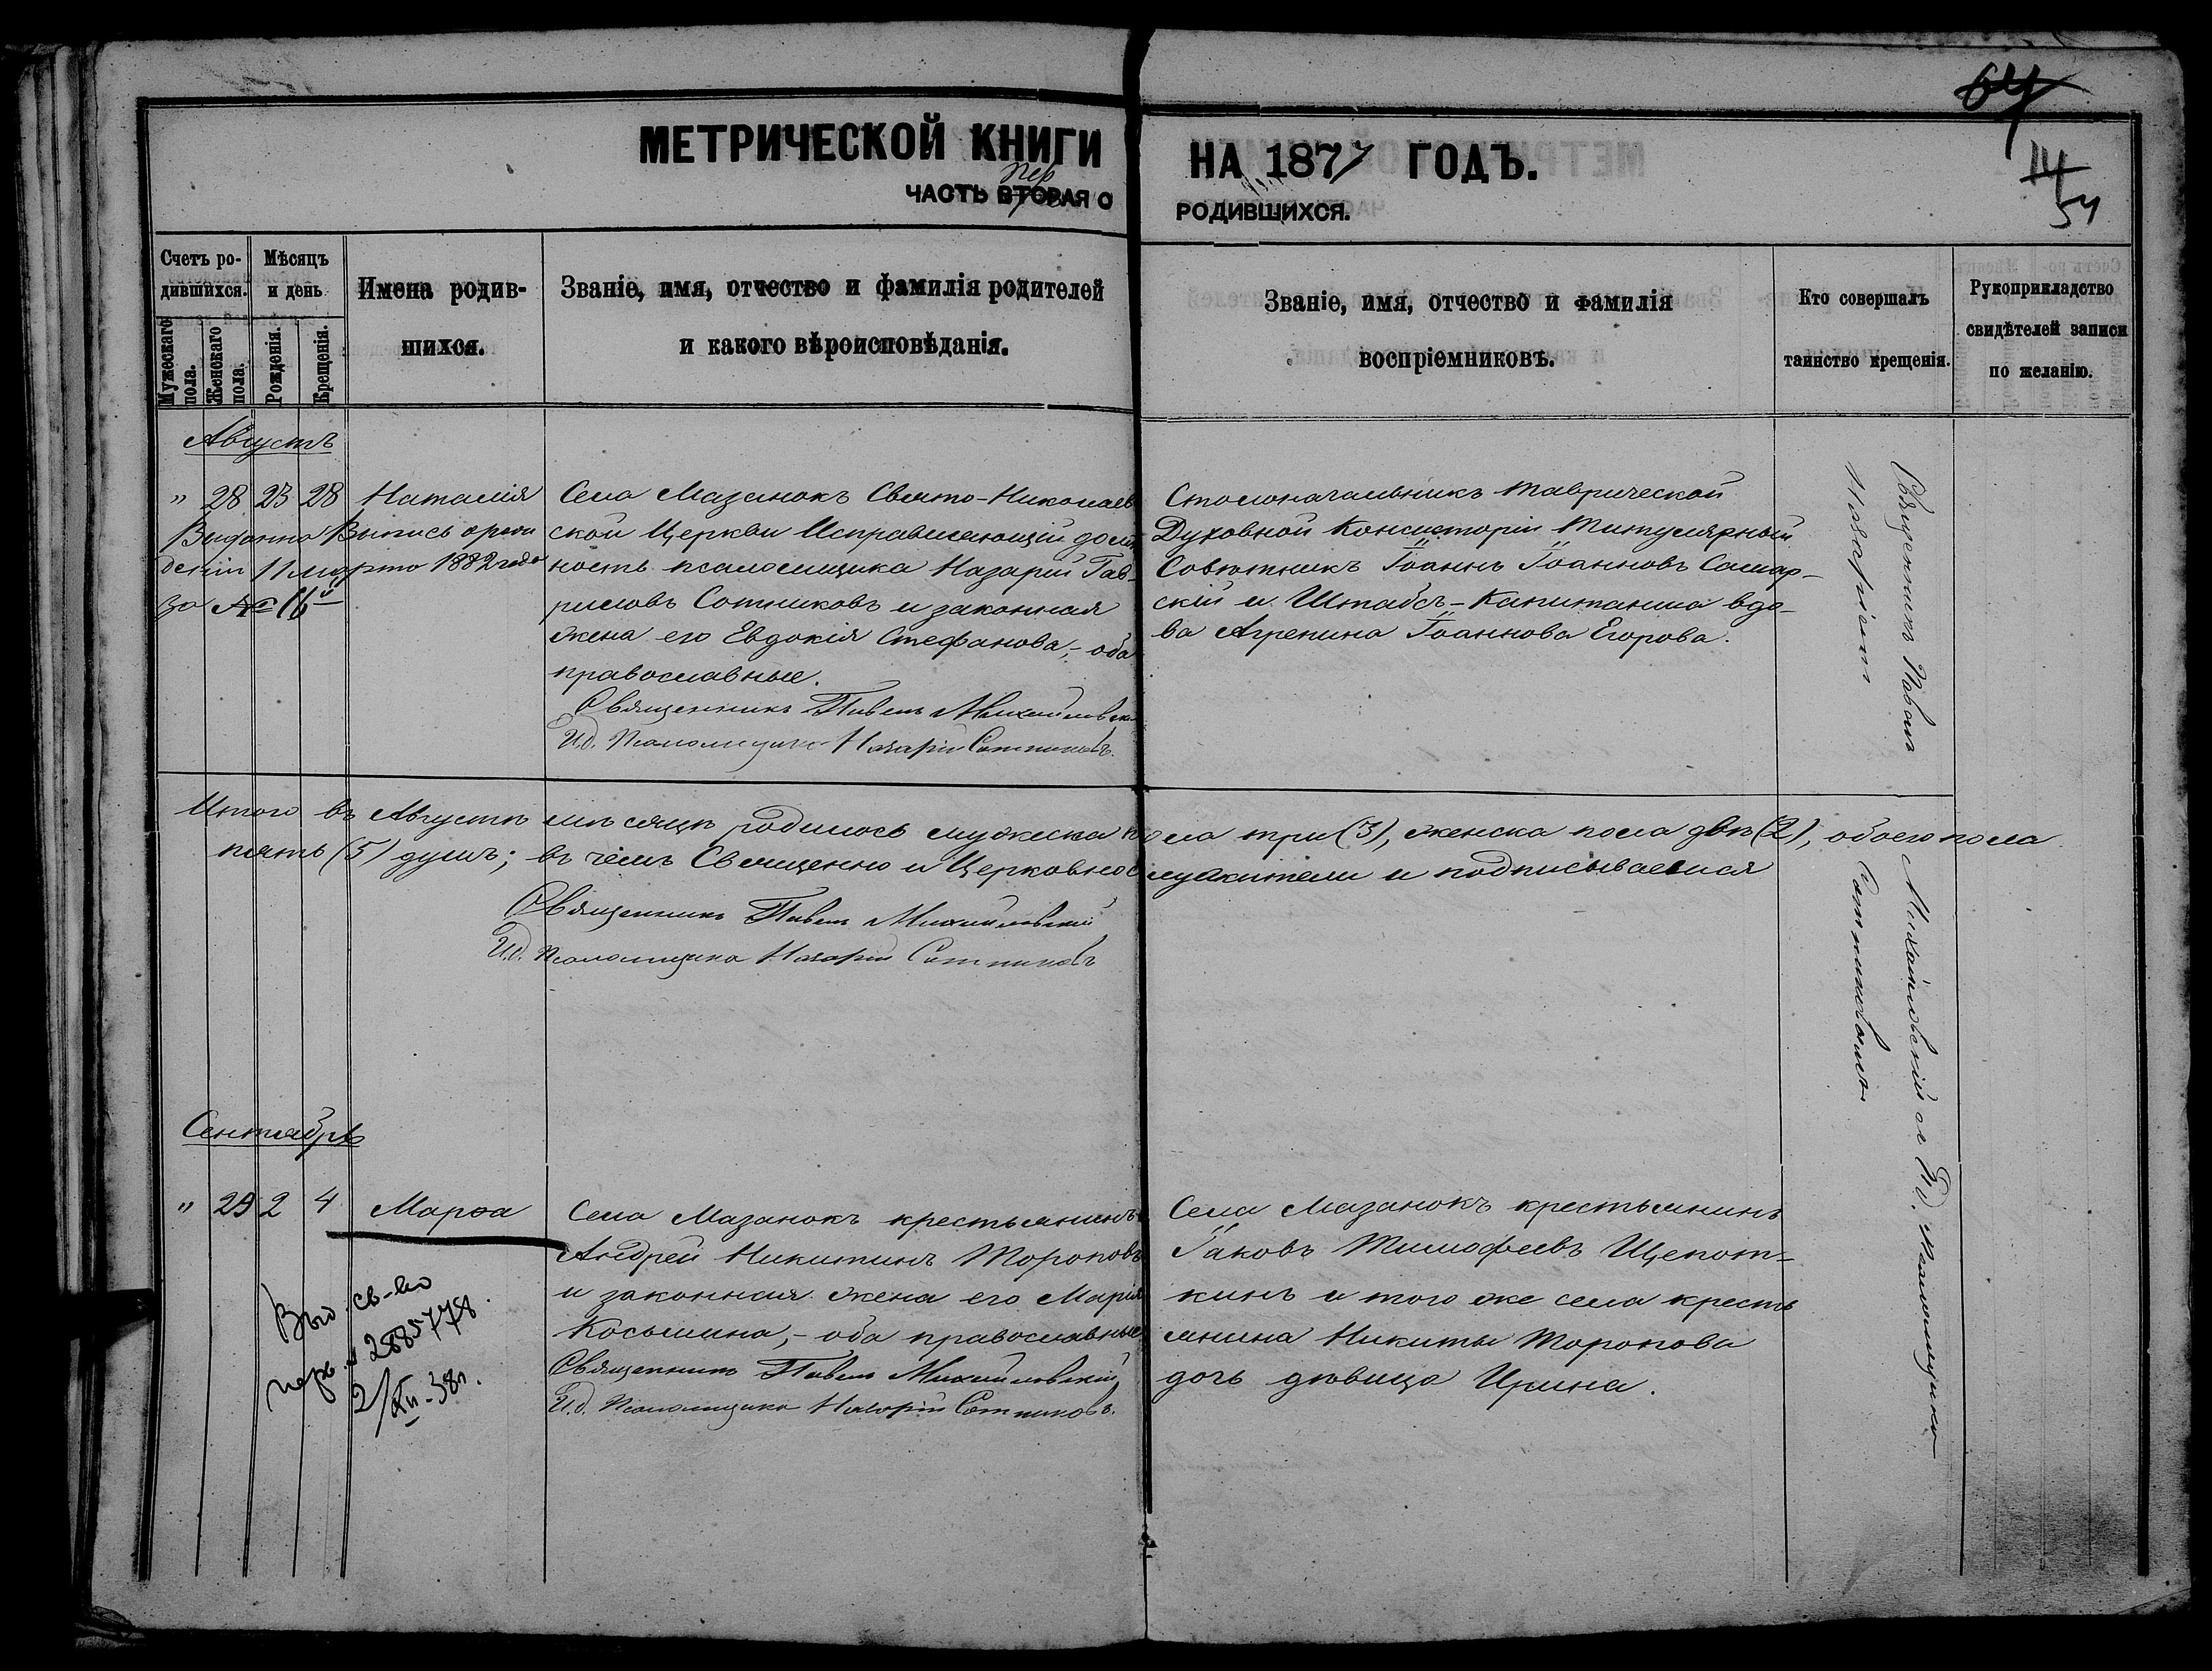 64
14
54
МЕТРИЧЕСКОЙ КНИГИ НА 1877 ГОДЪ.
ЧАСТЬ ВТОРАЯ О РОДИВШИХСЯ.
пер
Счетъ ро-
дившихся.
Мужескаго пола.
Женскаго пола.
Мѣсяцъ
и день
Рожденія.
Крещенія.
Имена родив-
шихся.
Званіе, имя, отчество и фамилія родителей
и какого вѣроисповѣданія.
Званіе, имя, отчество и фамилія
воспріемниковъ.
Кто совершалъ
таинство крещенія.
Рукоприкладство
свидѣтелей записи
по желанію.
Августъ
" 28 23 28 Наталія
Выдана Выпись о рож
деніи 11 марта 1882 года
за № 16й
Села Мазанокъ Свято-Николаев
ской Церкви Исправляющій долж
ность псаломщика Назарій Гав-
риловъ Сотниковъ и законная
жена его Евдокія Стефанова,- оба
православные.
Священникъ Павелъ Михайловскій
И.д. Псаломщика Назарій Сотниковъ.
Столоначальникъ Таврической
Духовной Консисторіи Титулярный
Совѣтникъ Іоаннъ Іоанновъ Самар-
скій и Штабсъ-Капитанша вдо-
ва Агрепина Іоаннова Егорова.
Священникъ Павелъ Михайловскій съ И.д. Псаломщика
Назаріем Сотниковымъ
Итого въ Августѣ мѣсяцѣ родилось мужеска пола три (3), женска пола двѣ (2), обоего пола
пять (5) душъ; въ чемъ Священно и Церковнослужители и подписываемся
Священникъ Павелъ Михайловскій
И.д. Псаломщика Назарій Сотниковъ
Сентябрь
" 29 2 4 Марѳа
Выд. св-во
2885778
2/XII-38г.
Села Мазанокъ крестьянинъ
Андрей Никитинъ Тороповъ
и законная жена его Марія
Косьмина,- оба православные.
Священникъ Павелъ Михайловскій
И.д. Псаломщика Назарій Сотниковъ.
Села Мазанокъ крестьянинъ
Іаковъ Тимофеевъ Щепот-
кинъ и того же села кресть
янина Никиты Торопова
дочь дѣвица Ирина.